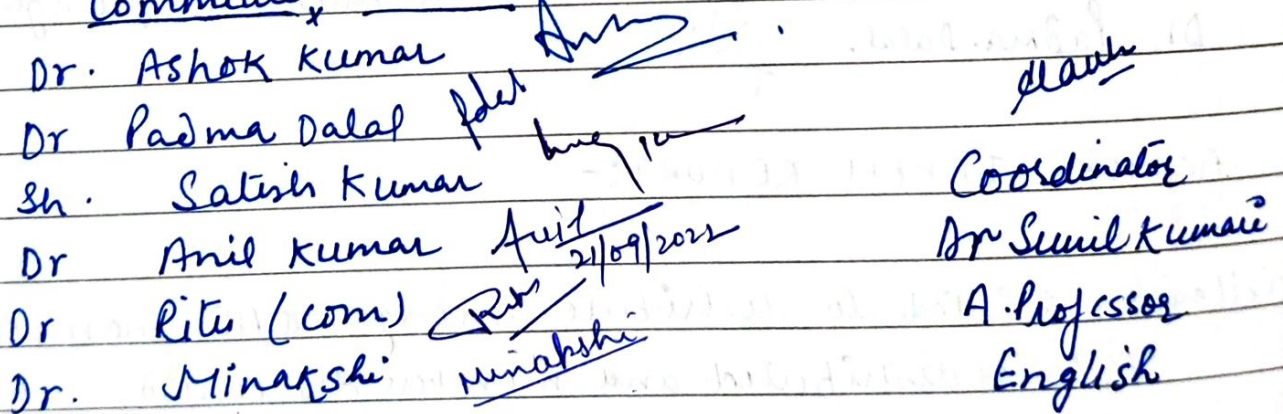 Dr. Ashok Kumar
Dr Padma Dalal
Sh. Satish Kumar
Dr Anil Kumar Anil 21/09/2022
Dr Ritu (com) Ritu
Dr. Minakshi Minakshi
Coordinator
Dr Sunil Kumar
A. Professor
English